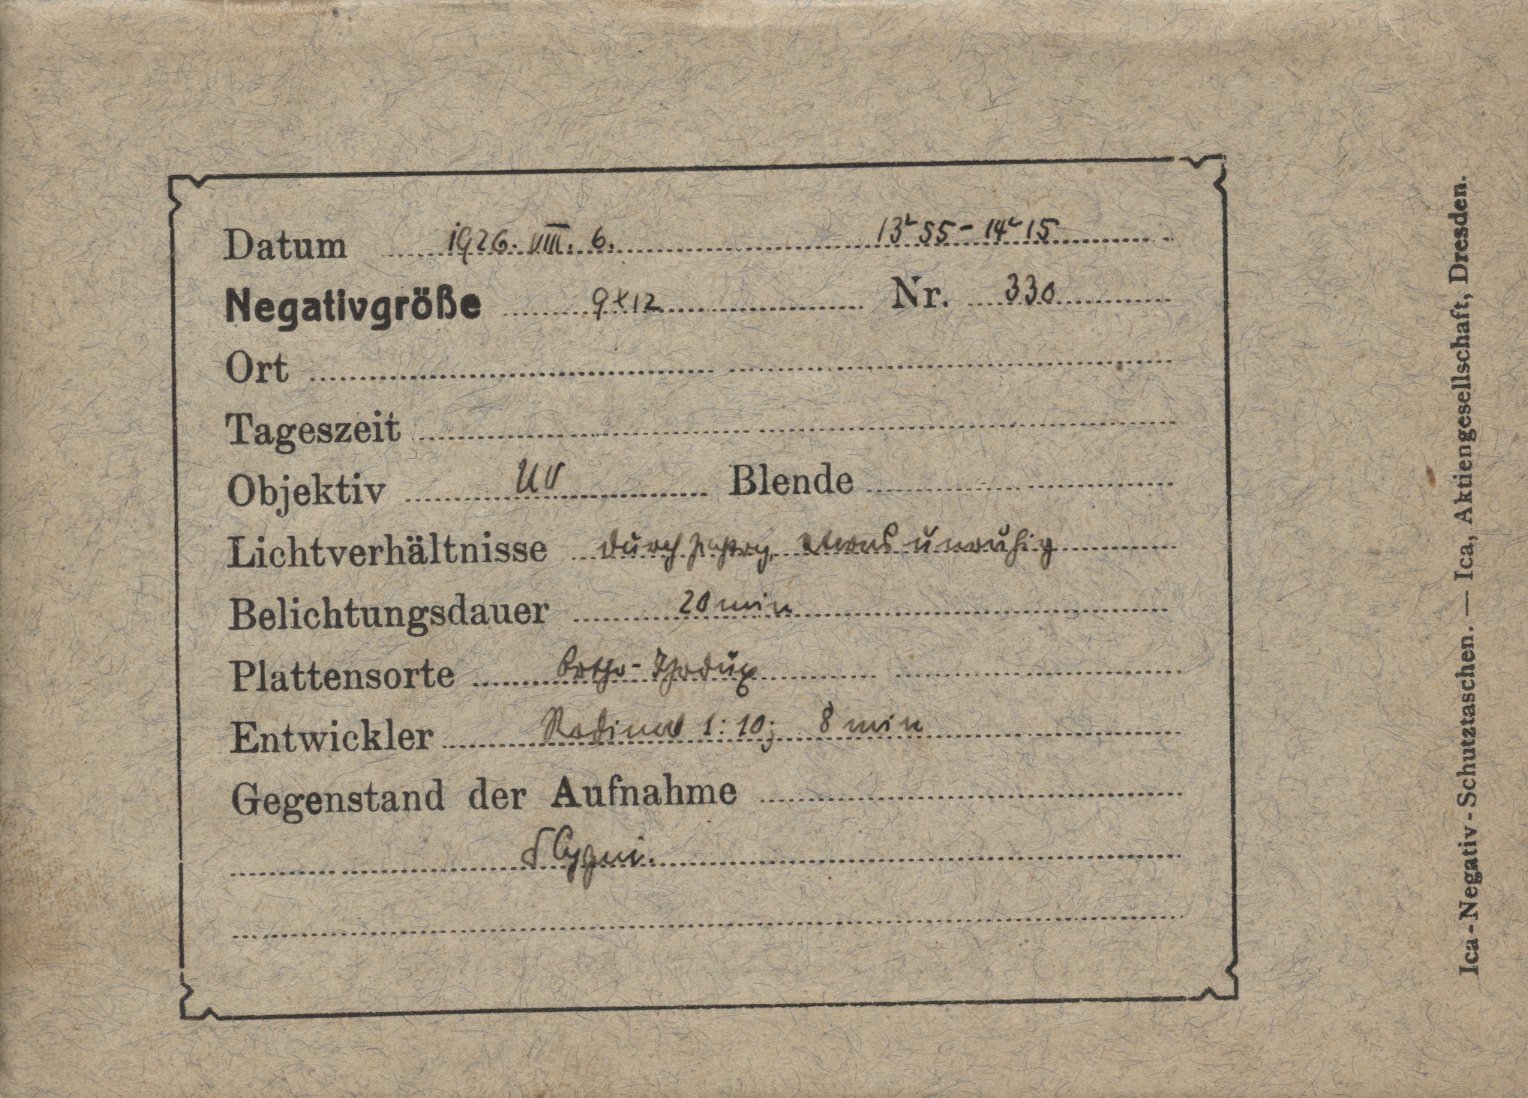 Datum 1926. VIII. 6. 13ʰ 55 – 14ʰ 15
Negativgröße 9x12 Nr. 330
Ort
Tageszeit
Objektiv UV Blende
Lichtverhältnisse durchsichtig, etwas unruhig
Belichtungsdauer 20 min
Plattensorte Ortho-
Entwickler Rodinal 1:10; 8 min
Gegenstand der Aufnahme
Cygni.
Ica-Negativ-Schutztaschen. — Ica, Aktiengesellschaft, Dresden.